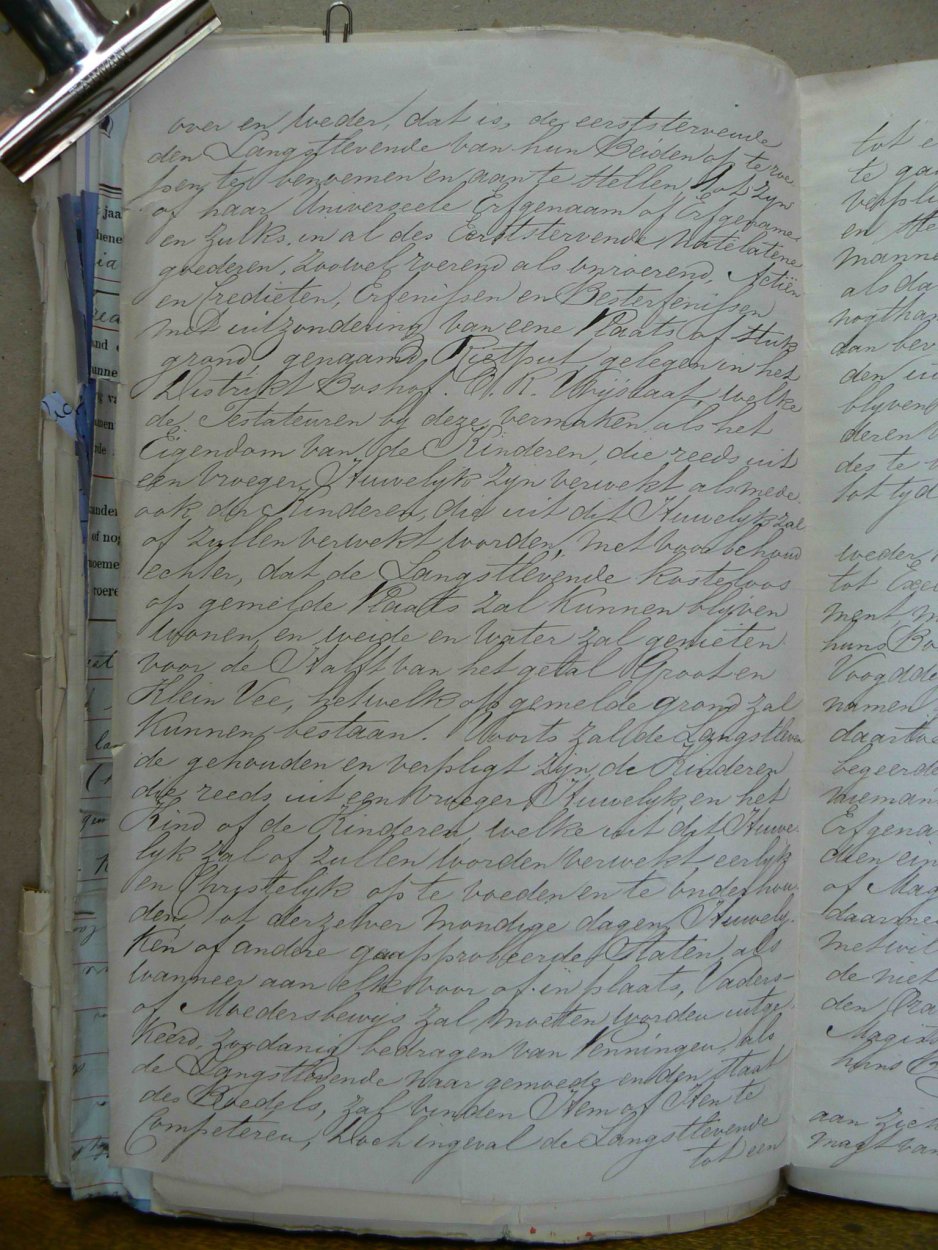 over en weder, dat is, de eerststervende
den Langstlevende van hun Beiden of te roe
pen, te benoemen en aan te stellen, tot zyn
of haar Universeele Erfgenaam of Erfgename
en zulks in al des Eerststervende Natelatene
goederen, zoowel roerend als onroerend, Actiën
en Credieten, Erfenissen en Besterfenissen
met uitzondering van eene Plaats of stuk
grond, genaamd, Rietput gelegen in het
Distrikt Boshof. O. R. Vrijstaat, welke
de Testateuren by deze vermaken als het
Eigendom van de Kinderen, die reeds uit
een vroeger Huwelyk zyn verwekt als mede
ook der Kinderen, die uit dit Huwelyk zal
of zullen verwekt worden, met voorbehoud
echter, dat de Langstlevende kosteloos
op gemelde Plaats zal kunnen blijven
wonen, en weide en water zal genieten
voor de Halft van het getal Groot en
Klein Vee, hetwelk op gemelde grond zal
Kunnen bestaan. Voorts zal de Langstleven
de gehouden en verpligt zyn, de Kinderen
die reeds uit een vroeger Huwelyk, en het
Kind of de Kinderen, welke uit dit Huwe-
lyk zal of zullen worden verwekt, eerlyk
en Christelyk op te voeden en te onderhou-
den, tot derzelver mondige dagen, Huwely-
ken of andere geapprobeerde Staten, als
wanneer aan elk voor of in plaats, Vaders-
of Moedersbewijs zal moeten worden uitge-
keerd, zoodanig bedragen van Penningen, als
de Langstlevende naar gemoede en den staat
des Boedels, zal vinden Hem of Hen te
Competeren, doch ingeval de Langstlevende
tot een
tot e
te ga
verpli
en
manne
als da
nogthan
dan bev
den
blyven
deren
des te
tot tyd
weder
tot Exe
ment
huns Bo
Voogdde
namen
daartoe
begeerde
nieman
Erfgena
dien ein
of Mag
daarme
met
de niet
den Ora
Magis
huns B
aan zic
magt van